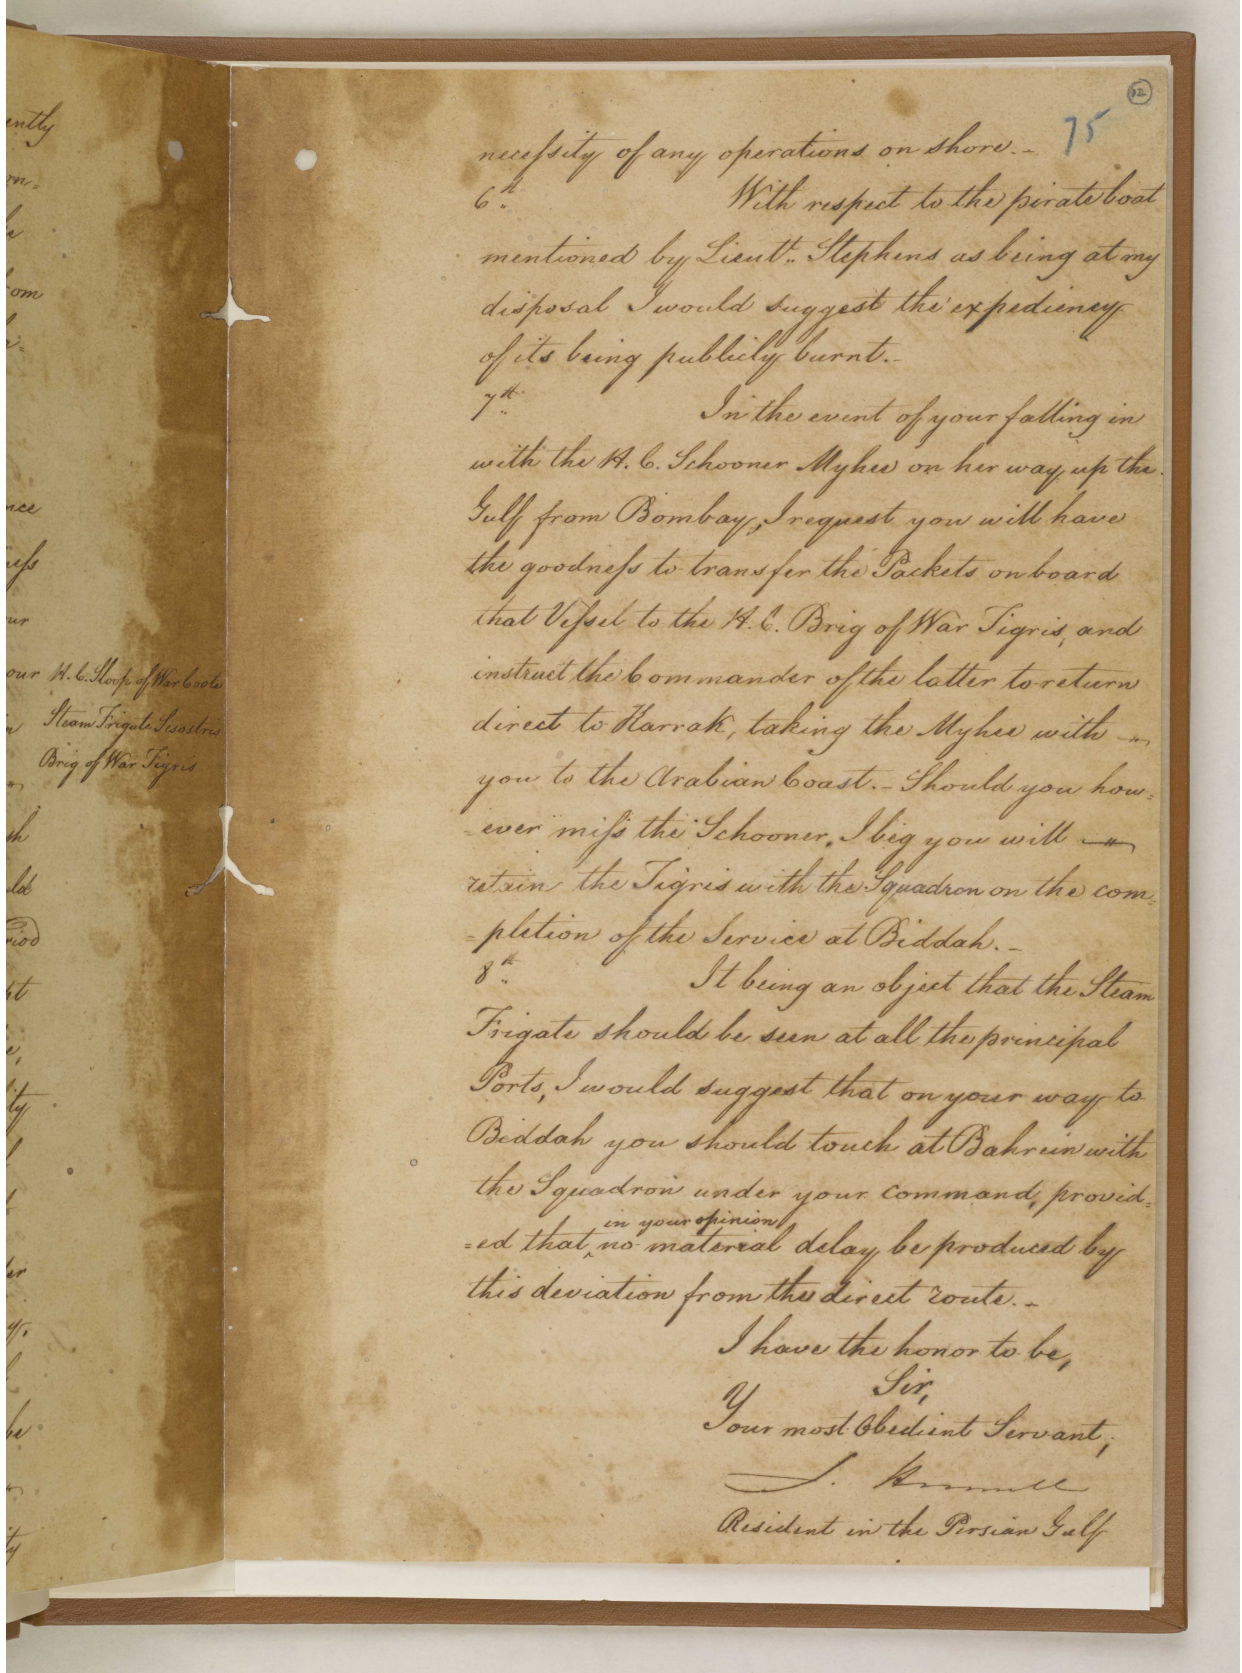 12
75
necessity of any operations on shore.-
6th With respect to the pirate boat
mentioned by Lieutt. Stephens as being at my
disposal I would suggest the expediency
of its being publicly burnt.-
7th In the event of your falling in
with the H. C. Schooner Myhee on her way up the
Gulf from Bombay, I request you will have
the goodness to transfer the Packets on board
that Vessel to the H. C. Brig of War Tigris, and
instruct the Commander of the latter to return
direct to Karrak, taking the Myhee with
you to the Arabian Coast.- Should you how=
=ever miss the Schooner, I beg you will
retain the Tigris with the Squadron on the com=
=pletion of the Service at Biddah.-
8th It being an object that the Steam
Frigate should be seen at all the principal
Ports, I would suggest that on your way to
Biddah you should touch at Bahrein with
the Squadron under your command, provid=
in your opinion
=ed that, no material delay be produced by
this deviation from the direct route.-
I have the honor to be,
Sir,
Your most Obedient Servant,
S. Hennell
Resident in the Persian Gulf
H. C. Sloop of War Coote
Steam Frigate Sesostris
Brig of War Tigris